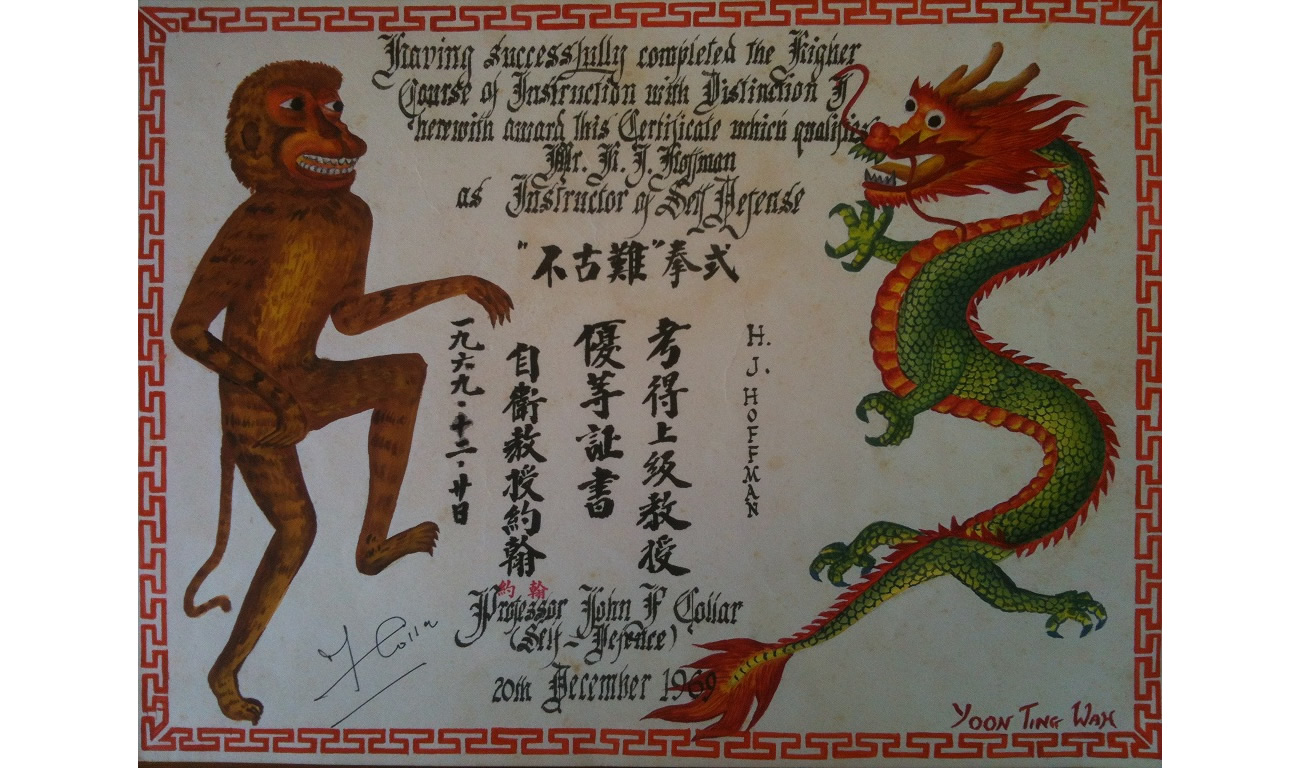 Having successfully completed the Higher
Course of Instruction with Distinction I
herewith award this Certificate which qualifies
Mr. H. J. Hoffman
as Instructor of Self Defense
"不古難"拳式
H. J. HOFFMAN
考得上級教授
優等証書
自衛教授約翰
一九六九·十二·廿日
約翰
Professor John F Collar
(Self-Defence)
20th December 1969
J F Collar
YOON TING WAH